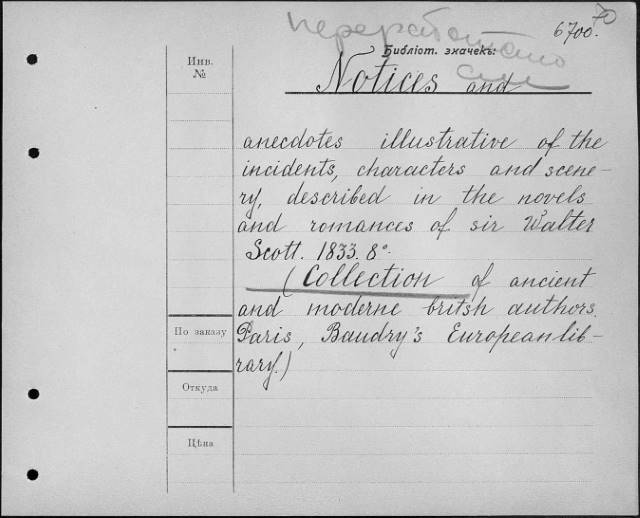 переработано
70
6700.
Библіот. значекъ:
Инв.
№
Notices and
anecdotes illustrative of the
incidents, characters and scene-
ry, described in the novels
and romances of sir Walter
Scott. 1833. 8°.
(Collection of ancient
and moderne britsh authors.
Paris, Baudry's European lib-
rary.)
По заказу
Откуда
Цѣна